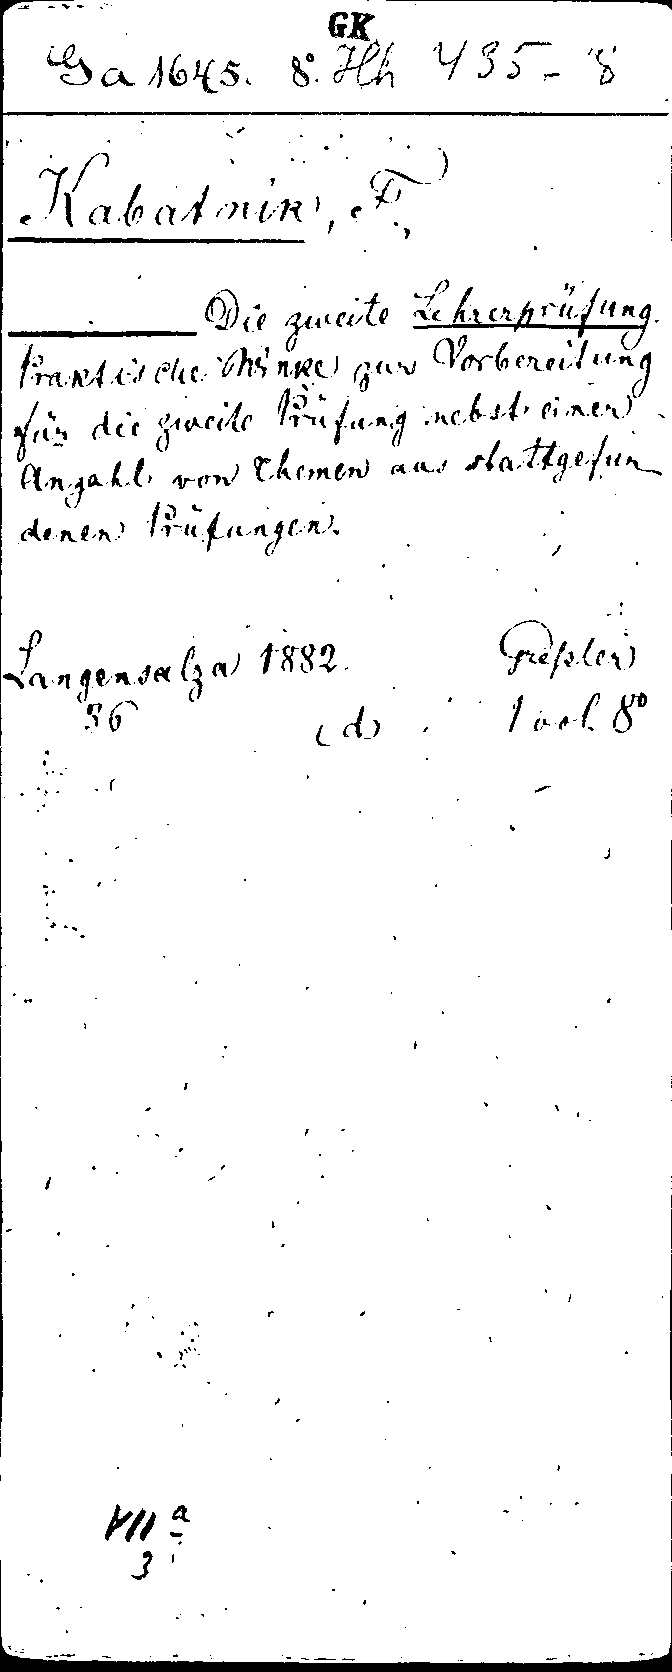 GK
Ga 1645. 8º. Hh 435 - 8
Kabatnik, F.,
Die zweite Lehrerprüfung.
Praktische Winke zur Vorbereitung
für die zweite Prüfung nebst einer
Anzahl von Themen aus stattgefun
denen Prüfungen.
Langensalza 1882. Greßler
36 (d) 1 vol. 8º
VII a
3